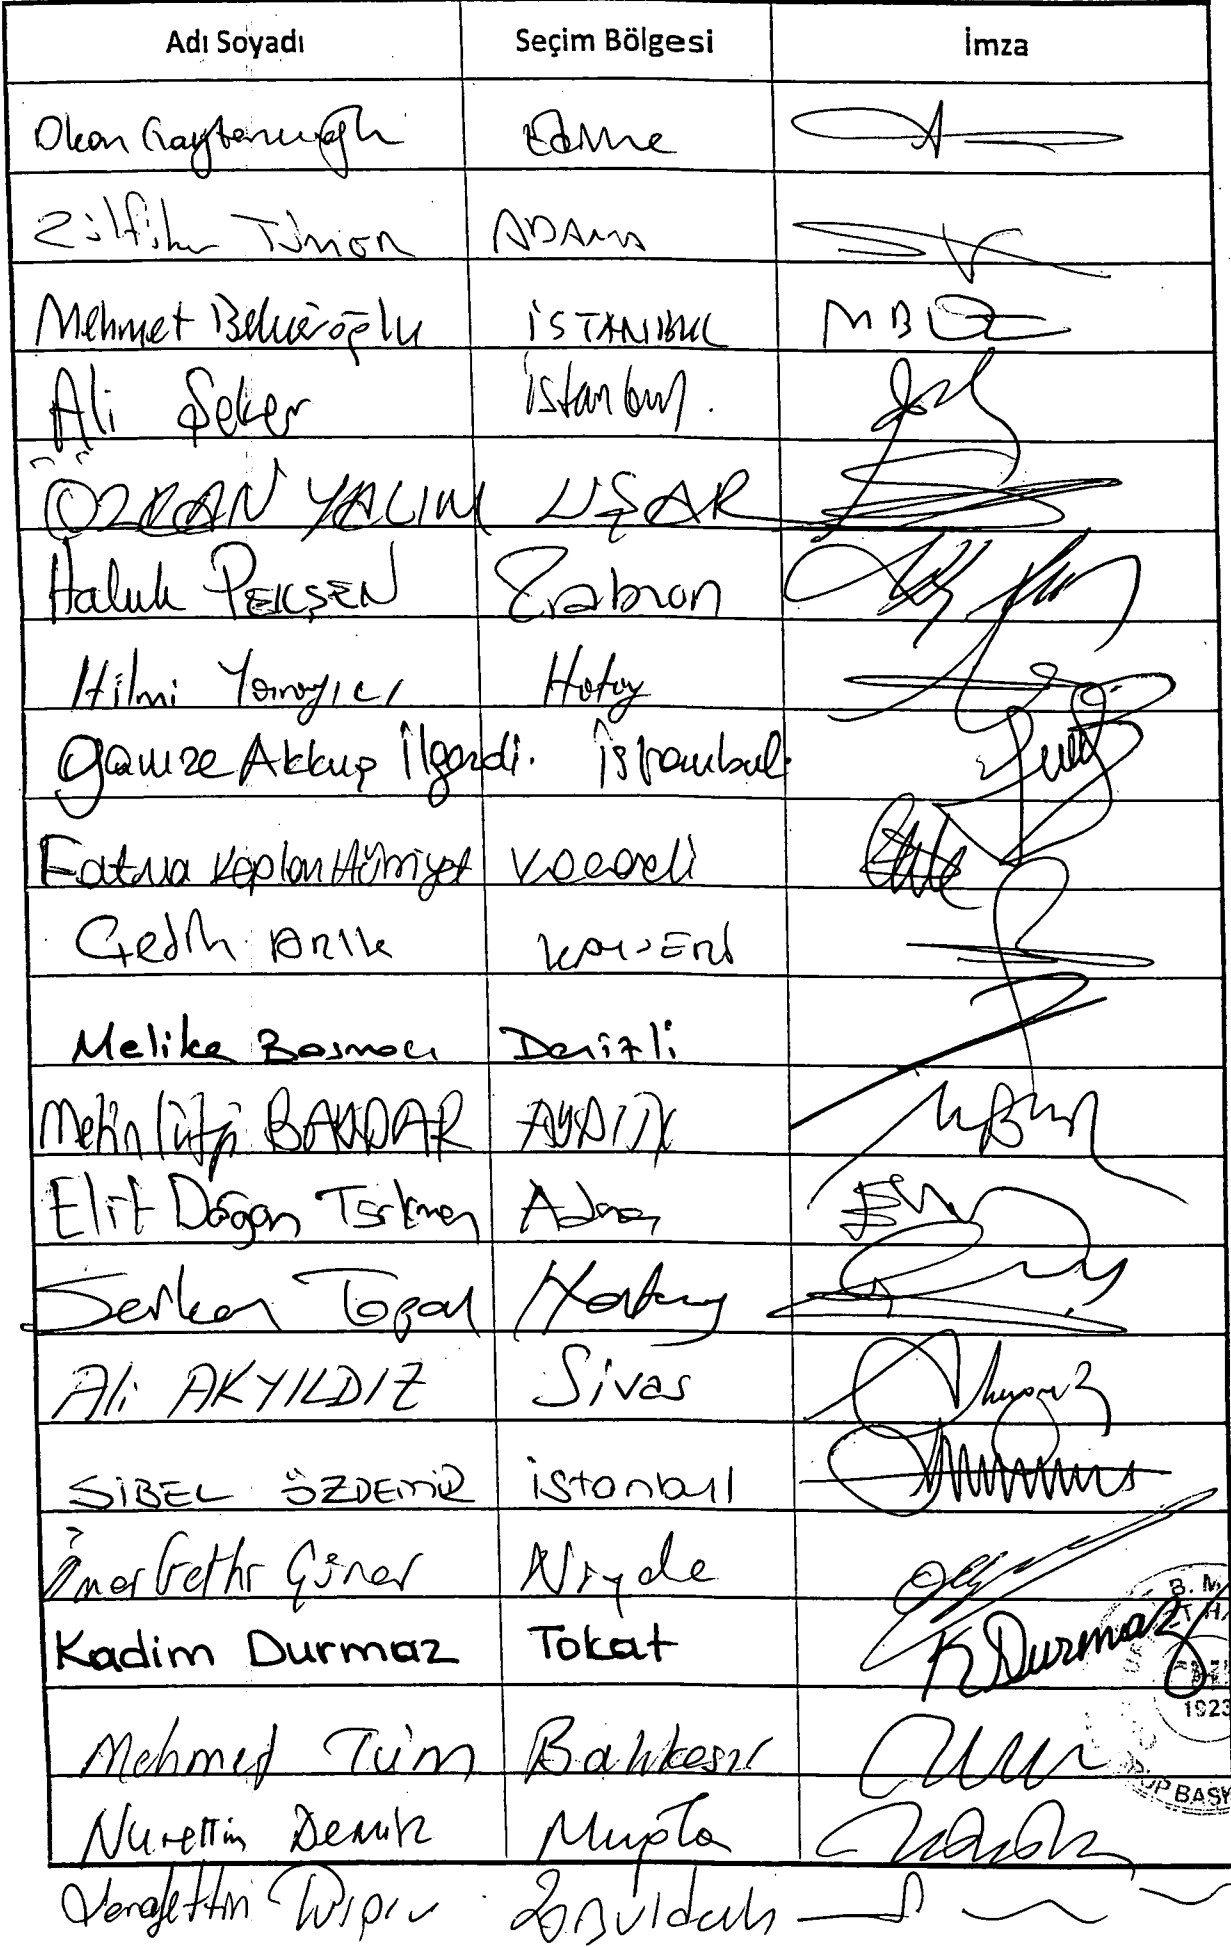 Adı Soyadı Seçim Bölgesi İmza
Okan Gaytancıoğlu Edirne
Zülfikar Tümor ADANA
Mehmet Bekaroğlu İSTANBUL MB
Ali Şeker İstanbul.
ÖZKAN YALIM UŞAK
Haluk PEKŞEN Trabzon
Hilmi Yarayıcı Hatay
Gamze Akkuş İlgezdi. İstanbul.
Fatma Kaplan Hürriyet Kocaeli
Çetin ARIK KAYSERİ
Melike Basmacı Denizli
Metin Lütfi BAYDAR AYDIN
Elif Doğan Türkmen Adana
Serkan Topal Hatay
Ali AKYILDIZ Sivas
SİBEL ÖZDEMİR İstanbul
Ömer Fethi Gürer Niğde
Kadim Durmaz Tokat K Durmaz
Mehmet Tüm Balıkesir
Nurettin Demir Muğla
Şerafettin Turpcu Zonguldak
1923